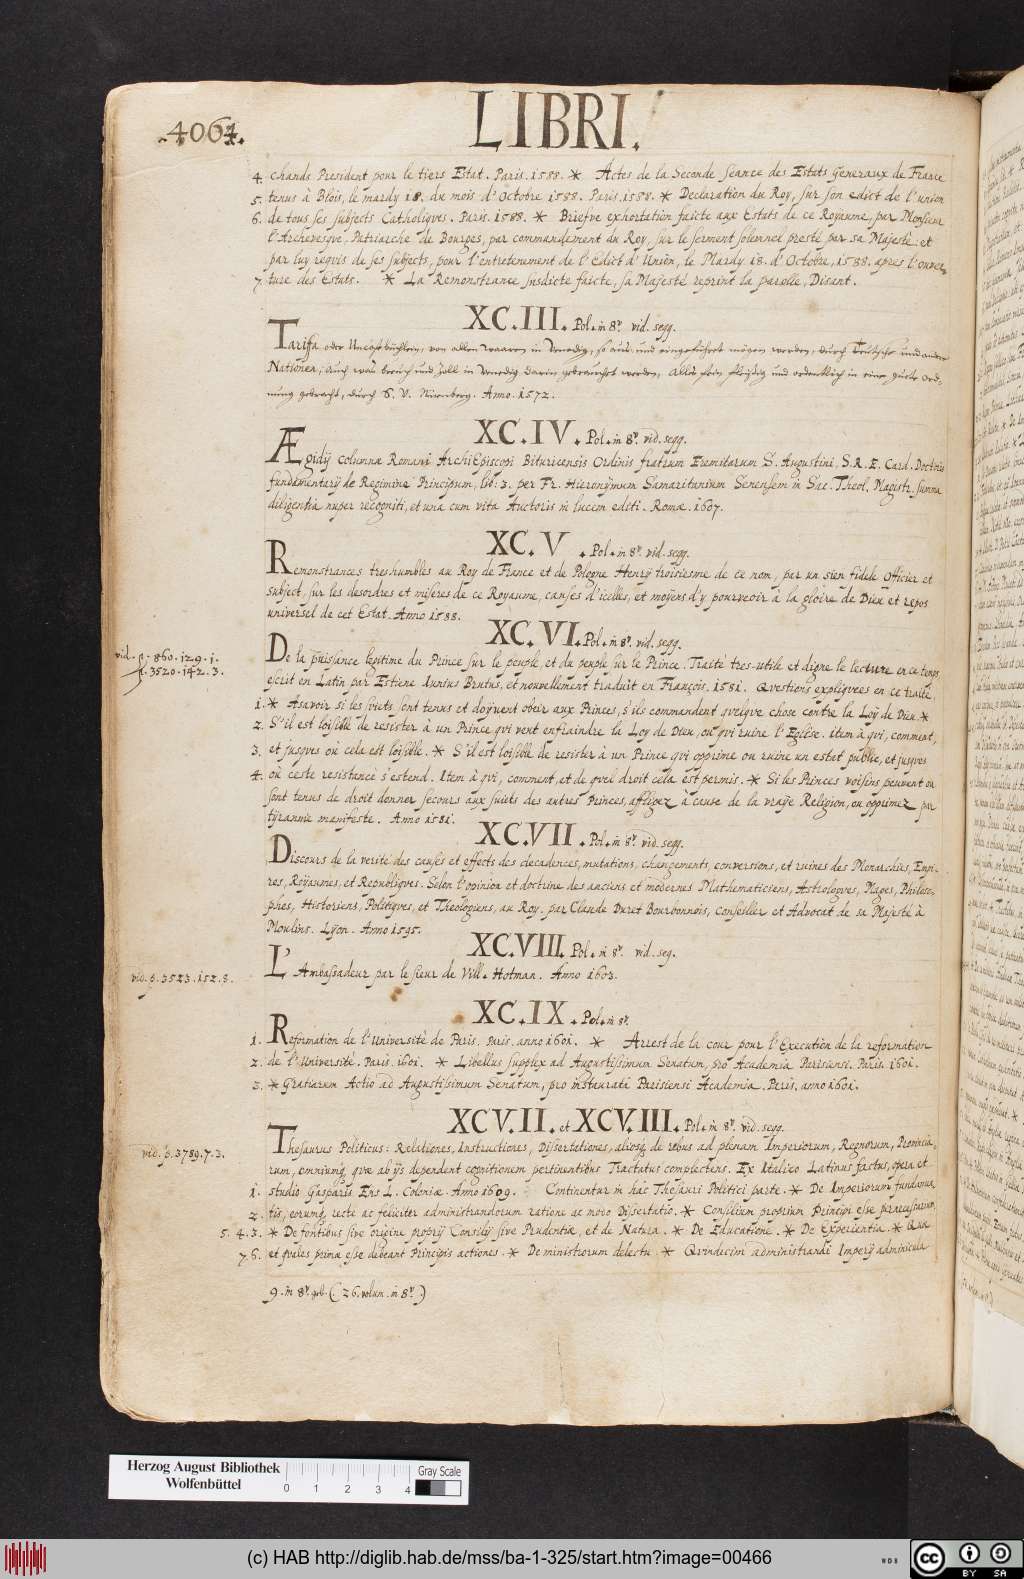 .4064.
LIBRI.
4. chands President pour le tiers Estat. Paris. 1588. * Actes de la Seconde seance des Estats Generaux de France
5. tenus à Blois, le mardy 18. du mois d'Octobre 1588. Paris. 1588. * Declaration du Roy, sur son edict de l'union
6. de tous ses subjects Catholiques. Paris. 1588. * Briefve exhortation faicte aux Estats de ce Royaume, par Monsieur
l'Archevesque, Patriarche de Bourges, par commandement du Roy, sur le serment solemnel presté par sa Majesté: et
par luy requis de ses subjects, pour l'entretenement de l'Edict d'Union, le Mardy 18. d'Octobre, 1588. apres l'ouver
7. ture des Estats. * La Remonstrance susdicte faicte, sa Majesté reprint la parolle, Disant.
XC.III. Pol. in 8°. vid. segg.
Tariffa oder Uncostbüchlein, von allen waaren in Venedig, so aus, und eingeführet mögen werden, durch Teutsche und andere
Nationen, Auch was brauch und Zoll in Venedig darin gebraucht werden, Alles sein fleissig und ordentlich in eine gute Ord-
nung gebracht, durch S. V. Nürnberg. Anno. 1572.
XC.IV. Pol. in 8°. vid. segg.
Ægidij Columnæ Romani ArchiEpiscopi Bituricensis Ordinis fratrum Eremitarum S. Augustini, S.R.E. Card. Doctris
fundamentarij de Regimine Principum, lib: 3. per Fr. Hieronymum Samaritanium Senensem in Sac. Theol. Magistr. summa
diligentia nuper recogniti, et una cum vita Auctoris in lucem editi. Romæ. 1607.
XC.V. Pol. in 8°. vid. segg.
Remonstrances treshumbles au Roy de France et de Pologne Henry troisiesme de ce nom, par un sien fidele Officier et
subject, sur les desordres et miseres de ce Royaume, causes d'icelles, et moyens d'y pourveoir à la gloire de Dieu et repos
universel de cet Estat. Anno 1588.
XC.VI. Pol. in 8°. vid. segg.
vid. p. 860.129.1.
p. 3520.142.3.
De la puissance legitime du Prince sur le peuple, et du peuple sur le Prince. Traité tres-utile et digne le lecture en ce temps
escrit en Latin par Estiene Iunius Brutus, et nouvellement traduit en François. 1581. Questions expliquees en ce traité.
1. * Asavoir si les suiets sont tenus et doyvent obeir aux Princes, s'ils commandent quelque chose contre la Loy de Dieu. *
2. S'il est loisible de resister à un Prince qui veut enfraindre la Loy de Dieu, ou qui ruine l'Eglise. item à qui, comment,
3. et jusques où cela est loisible. * S'il est loisible de resister à un Prince qui opprime ou ruine un estat public, et jusques
4. où ceste resistance s'estend. Item à qui, comment, et de quel droit cela est permis. * Si les Princes voisins peuvent ou
sont tenus de droit donner secours aux suiets des autres Princes, affligez à cause de la vraye Religion, ou opprimez par
tyrannie manifeste. Anno 1581.
XC.VII. Pol. in 8°. vid. segg.
Discours de la verité des causes et effects des decadences, mutations, changements, conversions, et ruines des Monarchies, Empi-
res, Royaumes, et Republiques. Selon l'opinion et doctrine des anciens et modernes Mathematiciens, Astrologues, Mages, Philoso-
phes, Historiens, Politiques, et Theologiens, au Roy. par Claude Duret Bourbonnois, Conseiller et Advocat de sa Majesté à
Moulins. Lyon. Anno 1595.
XC.VIII. Pol. in 8°. vid. seg.
vid. p. 3523.152.8.
L'Ambassadeur par le sieur de Vill. Hotman. Anno 1603.
XC.IX. Pol. in 8°.
1. Reformation de l'Université de Paris. Paris. anno 1601. * Arrest de la cour pour l'Execution de la reformation
2. de l'Université. Paris 1601. * Libellus supplex ad Augustissimum Senatum, pro Academia Parisiensi. Paris. 1601.
3. * Gratiarum Actio ad Augustissimum Senatum, pro instaurata Parisiensi Academia. Paris. anno 1601.
XCV.II. et XCV.III. Pol. in 8°. vid. segg.
vid. p. 3789.7.3.
Thesaurus Politicus: Relationes, Instructiones, Dissertationes, aliosq de rebus ad plenam Imperiorum, Regnorum, Provincia-
rum, omniumq quæ ab ijs dependent cognitionem pertinentibus Tractatus complectens. Ex Italico Latinus factus, opera et
1. studio Gasparis Ens L. Coloniæ. Anno 1609. Continentur in hac Thesauri Politici parte. * De Imperiorum fundamen
2. tis, eorumq recte ac feliciter administrandorum ratione ac modo Dissertatio. * Consilium proprium Principi esse præcessurum
5. 4. 3. * De fontibus sive origine proprij Consilij sive Prudentiæ, et de Natura. * De Educatione. * De Experientia. * Qua
7. 6. et quales primæ esse debeant Principis actiones. * De ministrorum delectu. * Quindecim administrandi Imperij adminicula
9. in 8°. geb. (26. volum. in 8°.)
Herzog August Bibliothek
Wolfenbüttel
0 1 2 3 4
Gray Scale
(c) HAB http://diglib.hab.de/mss/ba-1-325/start.htm?image=00466
WDB
cc BY SA